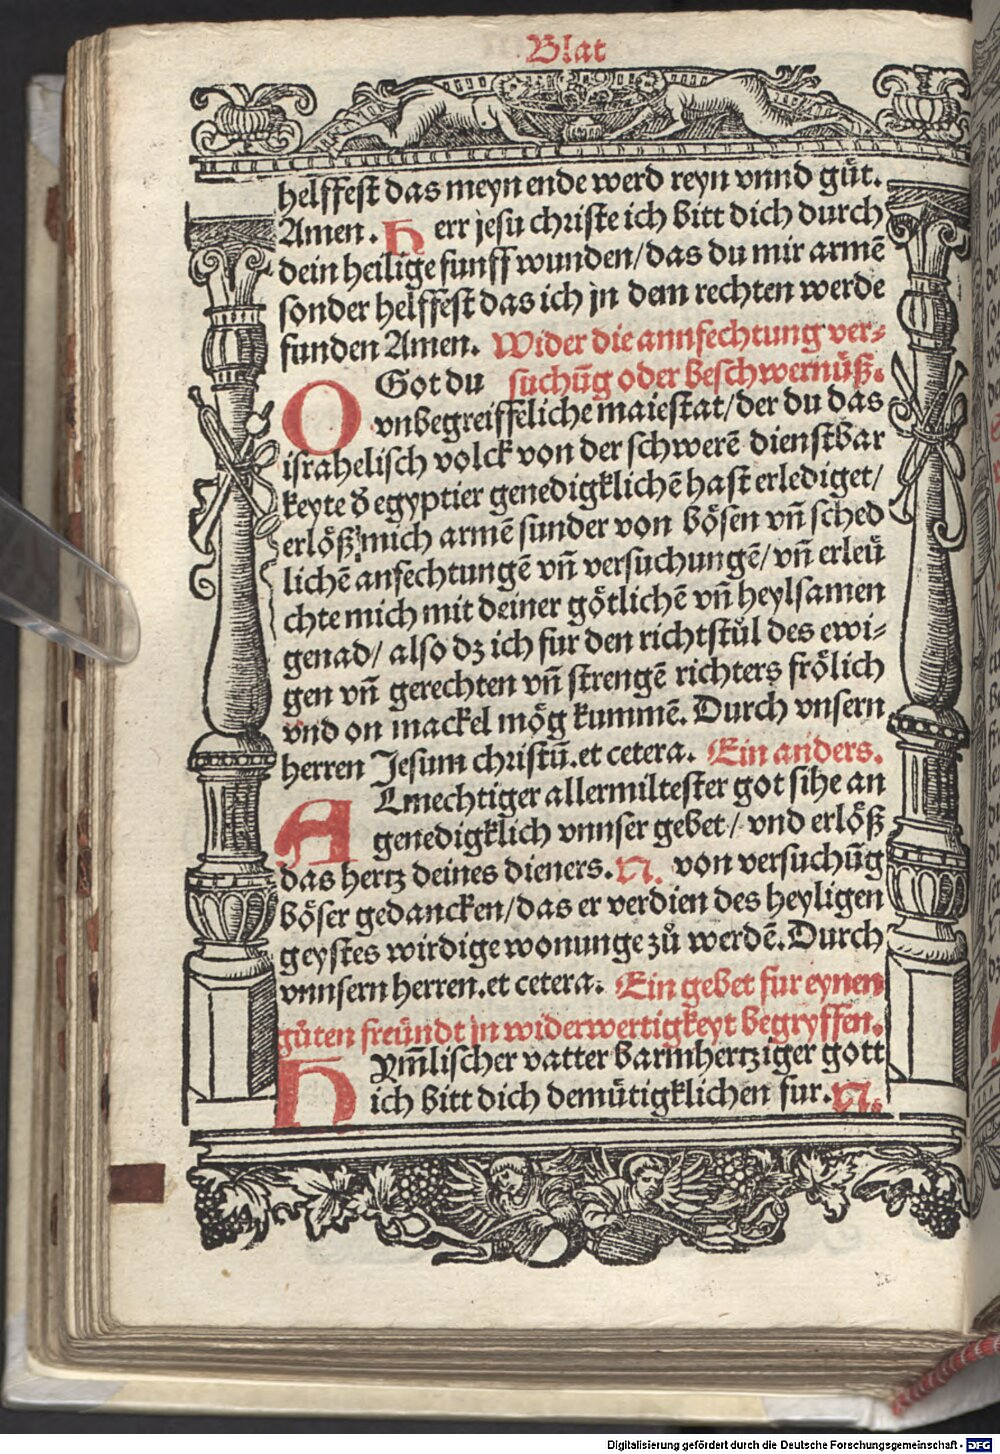 Blat
helffest das meyn ende werd reyn vnnd gůt.
Amen. Herr jesu christe ich bitt dich durch
dein heilige funff wunden/das du mir armē
sonder helffest das ich jn dem rechten werde
funden Amen. Wider die annfechtung ver-
O Got du suchūg oder beschwernüß.
vnbegreiffeliche maiestat/der du das
israhelisch volck von der schwerē dienstbar
keyte ð egyptier genedigklichē hast erlediget/
erlöß mich armē sunder von bösen vñ sched
lichē anfechtungē vñ versuchungē/vñ erleü
chte mich mit deiner götlichē vñ heylsamen
genad/ also dz ich fur den richtstůl des ewi-
gen vñ gerechten vñ strengē richters frölich
vnd on mackel mög kummē. Durch vnsern
herren Jesum christū.et cetera. Ein anders.
ALmechtiger allermiltester got sihe an
genedigklich vnnser gebet/ vnd erlöß
das hertz deines dieners. N. von versuchūg
böser gedancken/das er verdien des heyligen
geystes wirdige wonunge zů werdē. Durch
vnnsern herren.et cetera. Ein gebet fur eynen
gůten freündt jn widerwertigkeyt begryffen.
Hym̄lischer vatter barmhertziger gott
ich bitt dich demütigklichen fur. N.
Digitalisierung gefördert durch die Deutsche Forschungsgemeinschaft - DFG